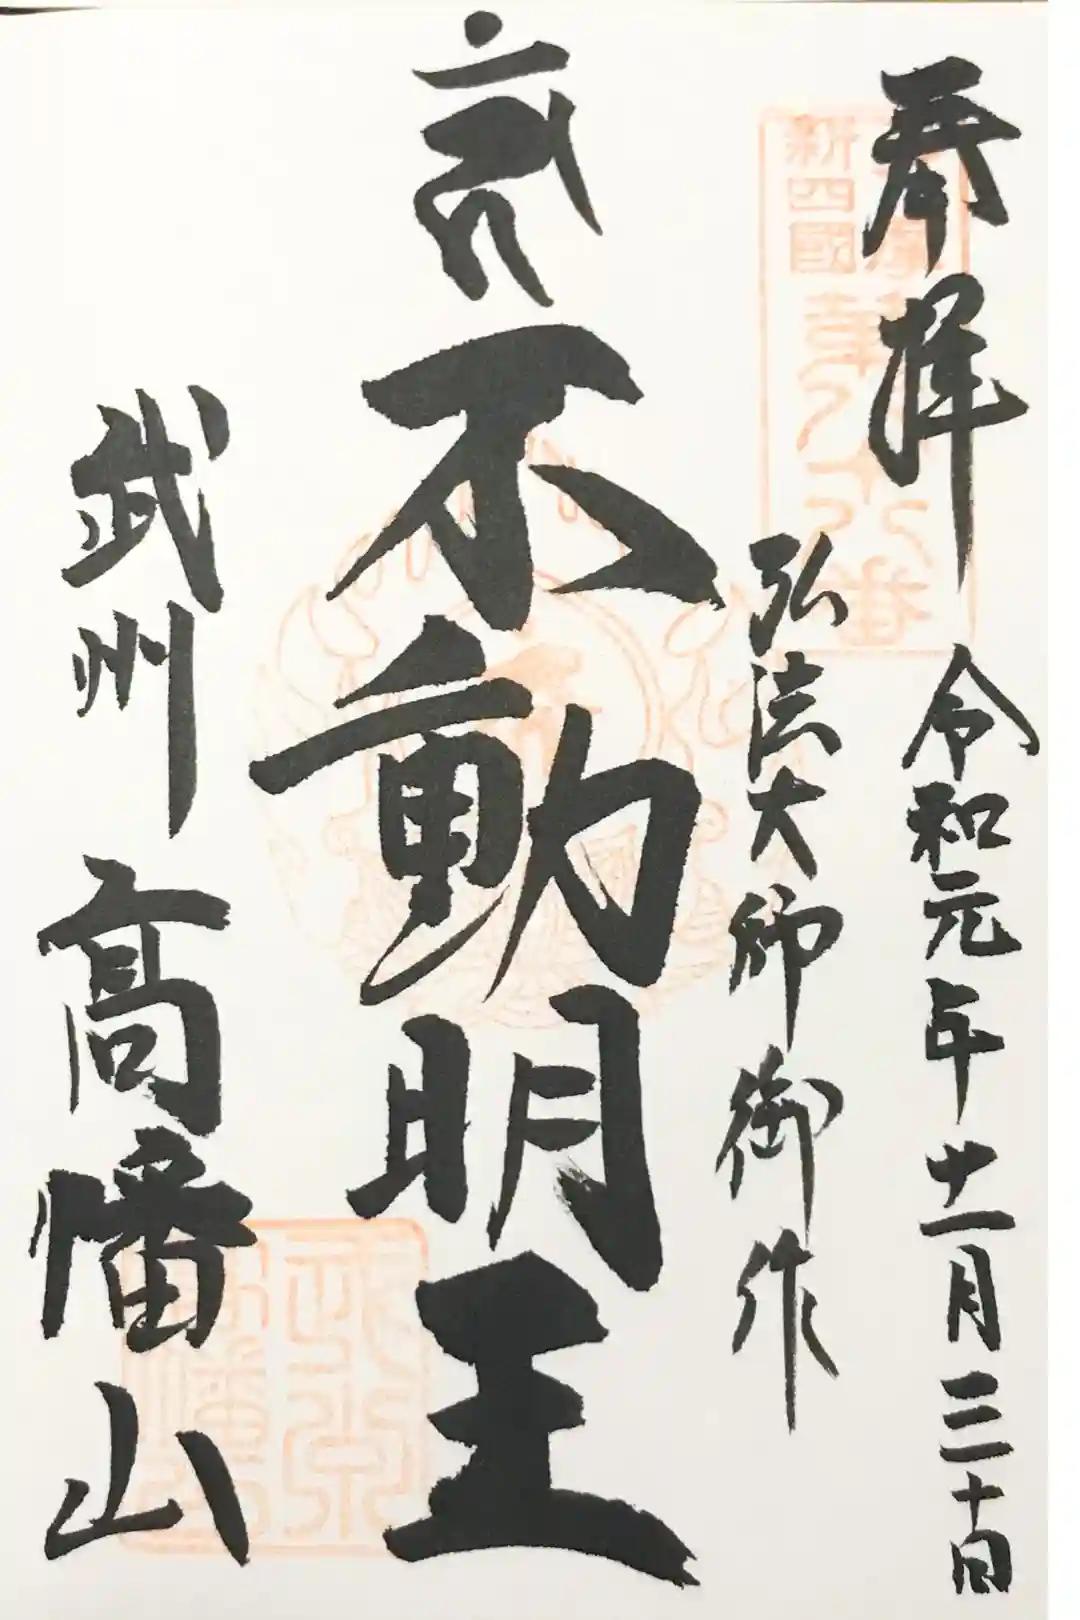 奉拝
令和元年十一月三十日
新四國
弘法大師御作
不動明王
武州
高幡山